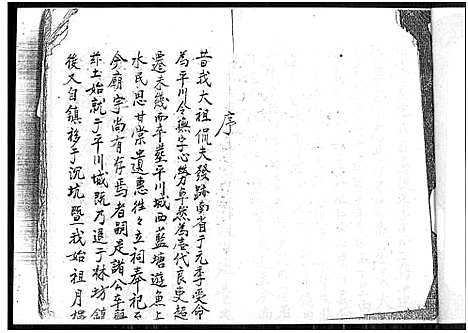 序
昔我大祖侃夫發跡南省于元季受命
為平川令無字心勞卓然為一代良吏超
遷未幾而卒葬平川城西藍塘遊魚上
水民思甘棠遺惠往々立祠奉祀至
今廟宇尚有存焉者嗣是諸公卒
玆土始就于平川城既乃退于林坊鎮
後又自鎮移于沉坑暨我始祖月